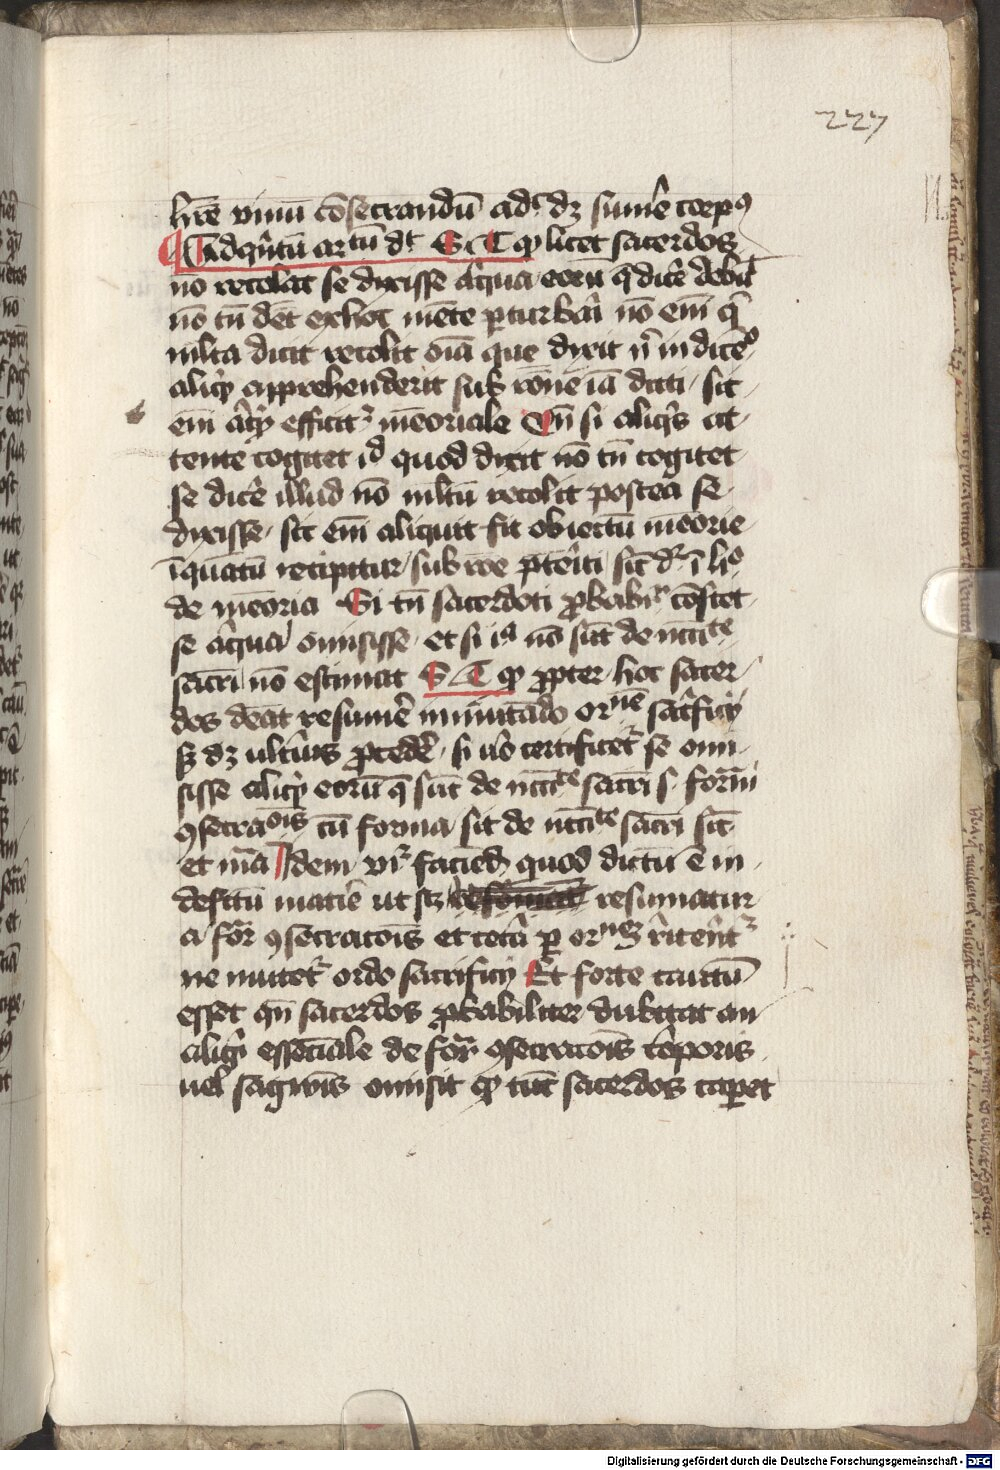 227
hr̄e vinū cōsecrandū ad^c dꝫ sumē corpꝰ
Ad qᷓrtū artū dt S. T. ꝙ licet sacerdos
nō recolat se dixisse aliqua eorū q̄ dicē debuit
nō tn̄ dēt ex hoc mēte ꝑturbari nō em̄ q̄
mlta dicit recolit oīa que dixit nͥ in dicēᵒ
aliqͥ apprehenderit sub rōne iā dicti sic
em̄ aliqͥ efficit᷑ mēoriale Vn̄ si aliqͥs at
tente cogitet id quod dicit nō tn̄ cogitet
se dicē illud nō mltū recolit postea se
dixisse sic em̄ aliquit fit obiectū mēorie
īquātū recipitur sub rōe p̄teriti sic̄ dr̄ ī liᵒ
de mēoria Si tn̄ sacerdoti ꝓbabil^r cōstet
se aliqua omisisse et si iᵃ nō sūt de nccͥte
sacrī nō estimat S. T. ꝙ ꝓpter hoc sacer
dos debeat resumē inmutādo ordinē sacrificij
sꝫ dꝫ ulterius ꝓcedē si vͦo certificet᷑ se omi
sisse aliqͥ eorū q̄ sūt de nccͥte sacrī s. formā
ꝯsecraōis cū forma sit de nccͥte sacrī sic̄
et mā Idem vr̄ faciēd quod dictū ē in
defctū materie ut scꝫ resumatur
a for ꝯsecratōis et cetͣa ꝑ ordinē ritent᷑
ne mutet᷑ ordo sacrificij Et forte tautū
esset qn̄ sacerdos ꝓbabiliter dubitat an
aliqͥ essēciale de for ꝯsecratōis corporis
uel sagwīs omisit ꝙ tūc sacerdos caperet
Digitalisierung gefördert durch die Deutsche Forschungsgemeinschaft - DFG